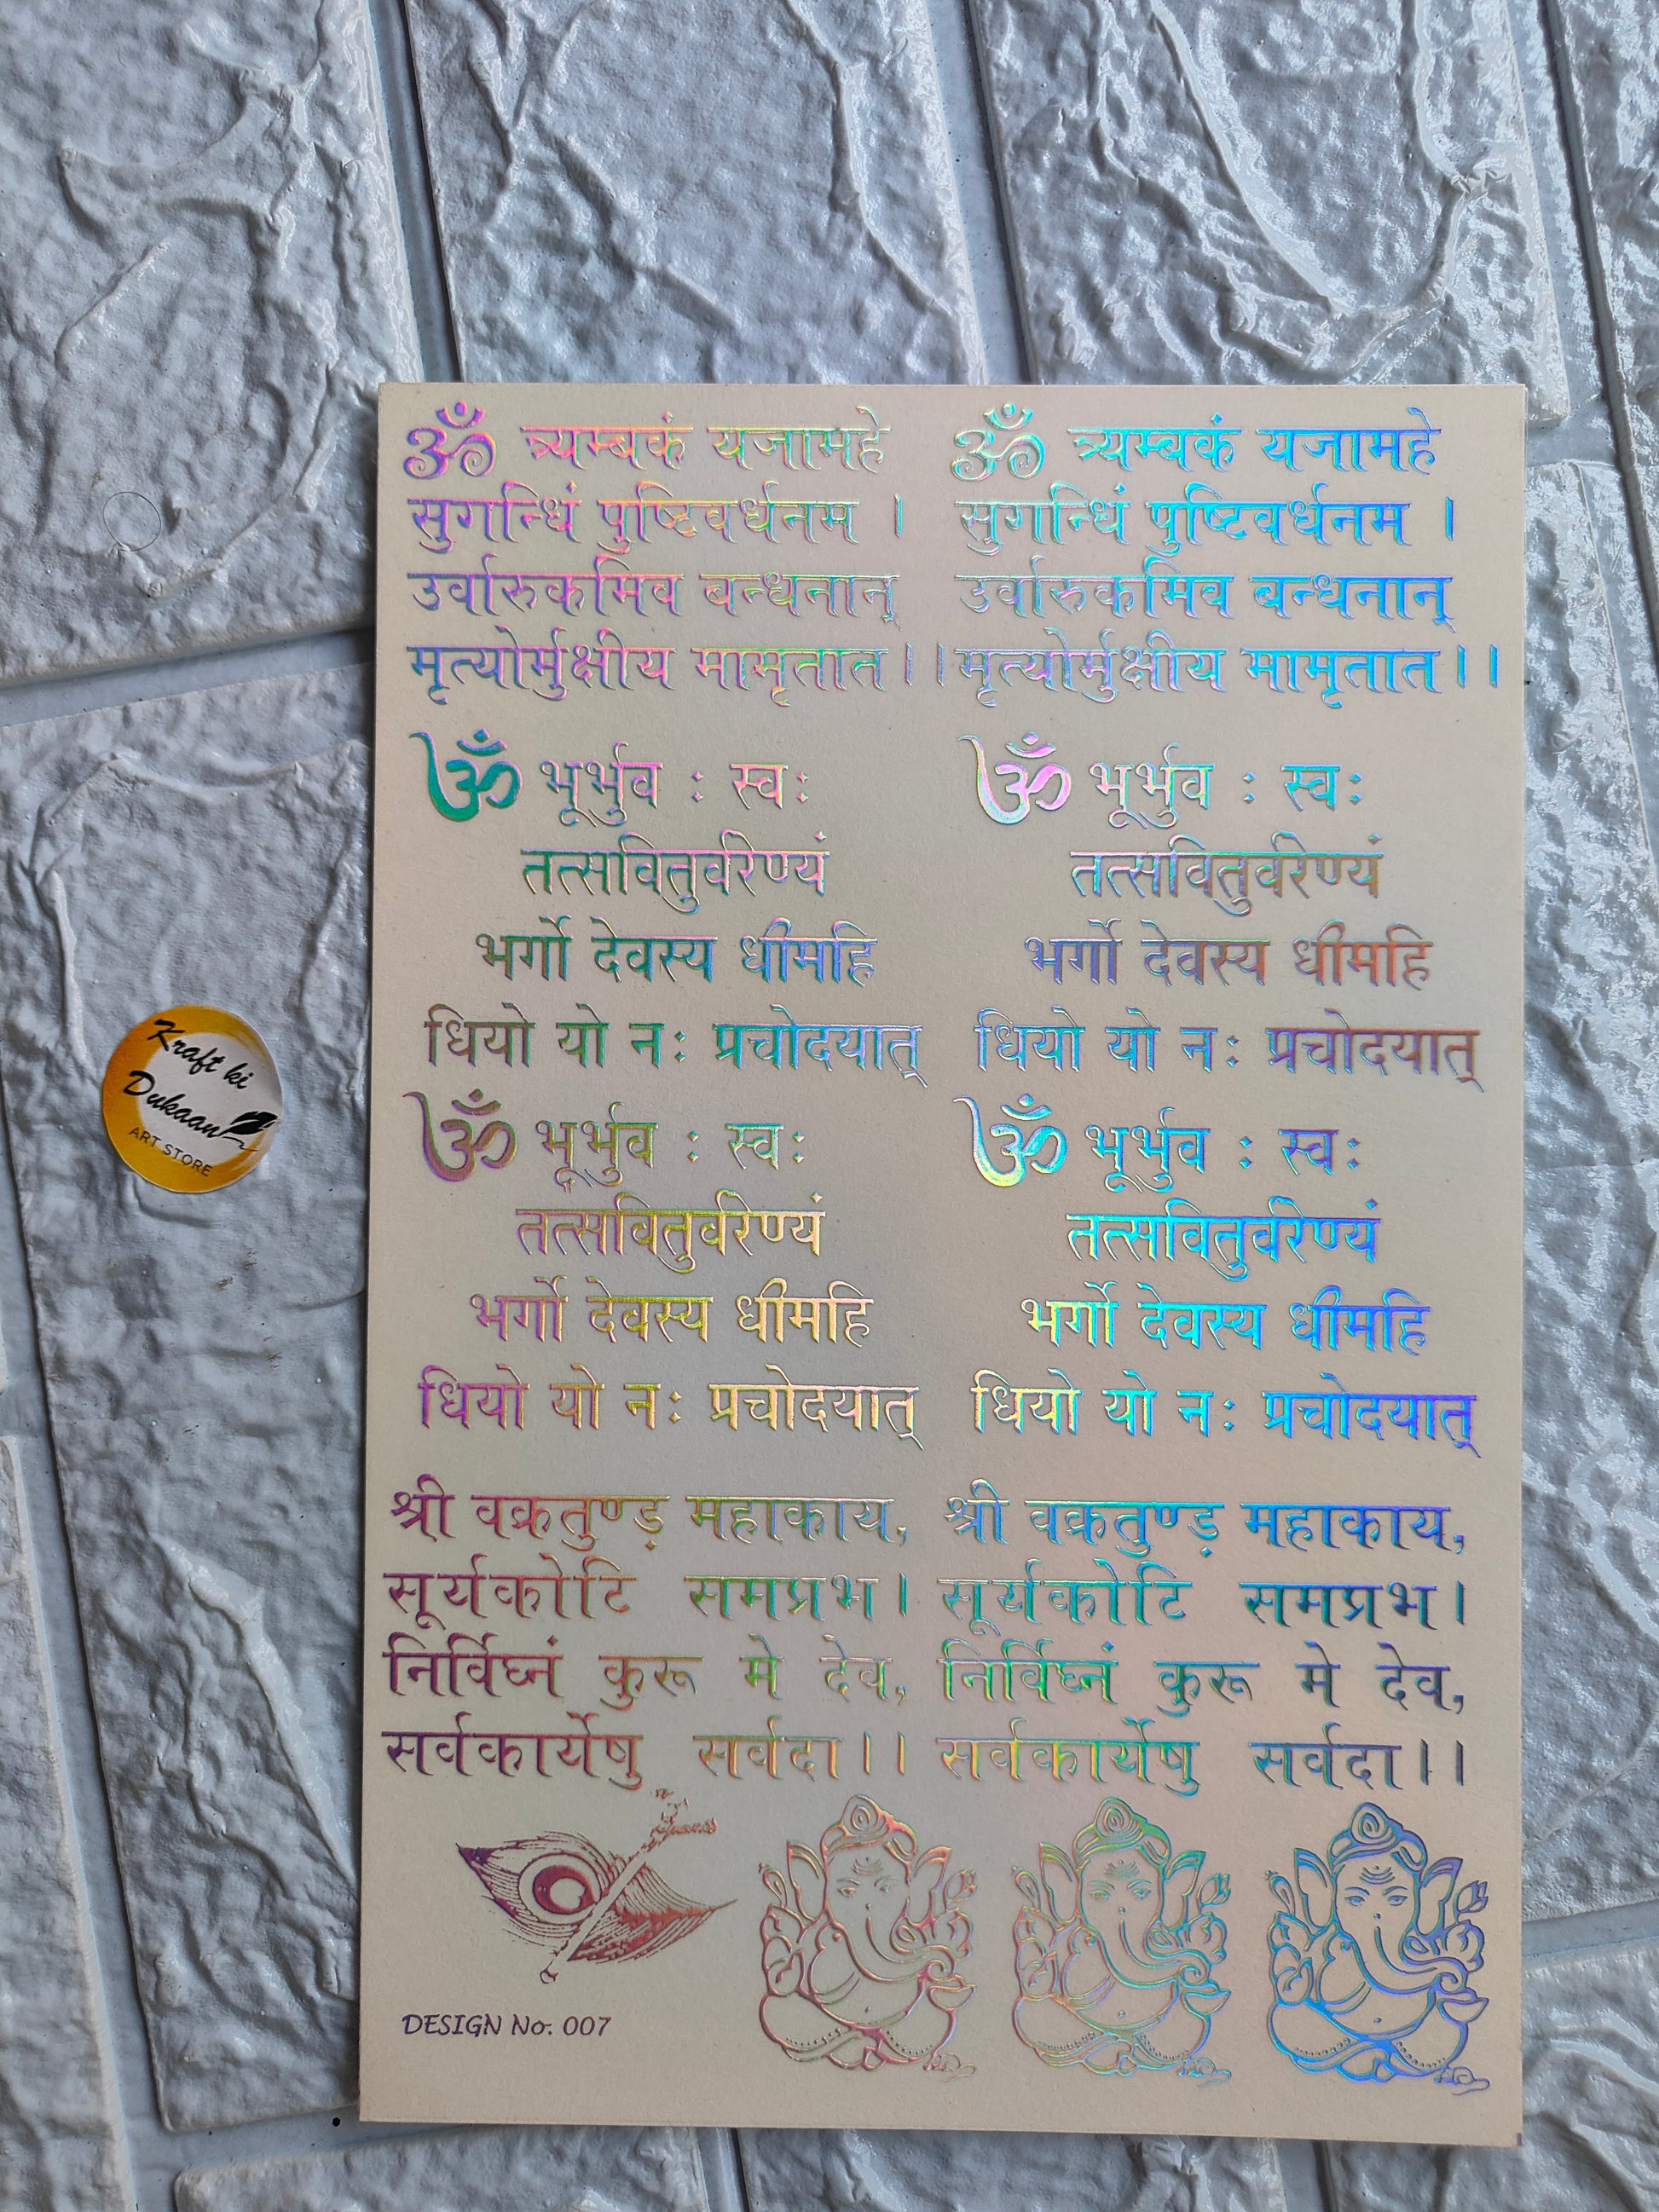 ॐ त्र्यम्बकं यजामहे
सुगन्धिं पुष्टिवर्धनम ।
उर्वारुकमिव बन्धनान्
मृत्योर्मुक्षीय मामृतात ।।
ॐ त्र्यम्बकं यजामहे
सुगन्धिं पुष्टिवर्धनम ।
उर्वारुकमिव बन्धनान्
मृत्योर्मुक्षीय मामृतात ।।
ॐ भूर्भुव : स्वः
तत्सवितुर्वरेण्यं
भर्गो देवस्य धीमहि
धियो यो नः प्रचोदयात्
ॐ भूर्भुव : स्वः
तत्सवितुर्वरेण्यं
भर्गो देवस्य धीमहि
धियो यो नः प्रचोदयात्
ॐ भूर्भुव : स्वः
तत्सवितुर्वरेण्यं
भर्गो देवस्य धीमहि
धियो यो नः प्रचोदयात्
ॐ भूर्भुव : स्वः
तत्सवितुर्वरेण्यं
भर्गो देवस्य धीमहि
धियो यो नः प्रचोदयात्
श्री वक्रतुण्ड़ महाकाय,
सूर्यकोटि समप्रभ।
निर्विघ्नं कुरू मे देव,
सर्वकार्येषु सर्वदा।।
श्री वक्रतुण्ड़ महाकाय,
सूर्यकोटि समप्रभ।
निर्विघ्नं कुरू मे देव,
सर्वकार्येषु सर्वदा।।
DESIGN No. 007
Kraft ki
Dukaan
ART STORE